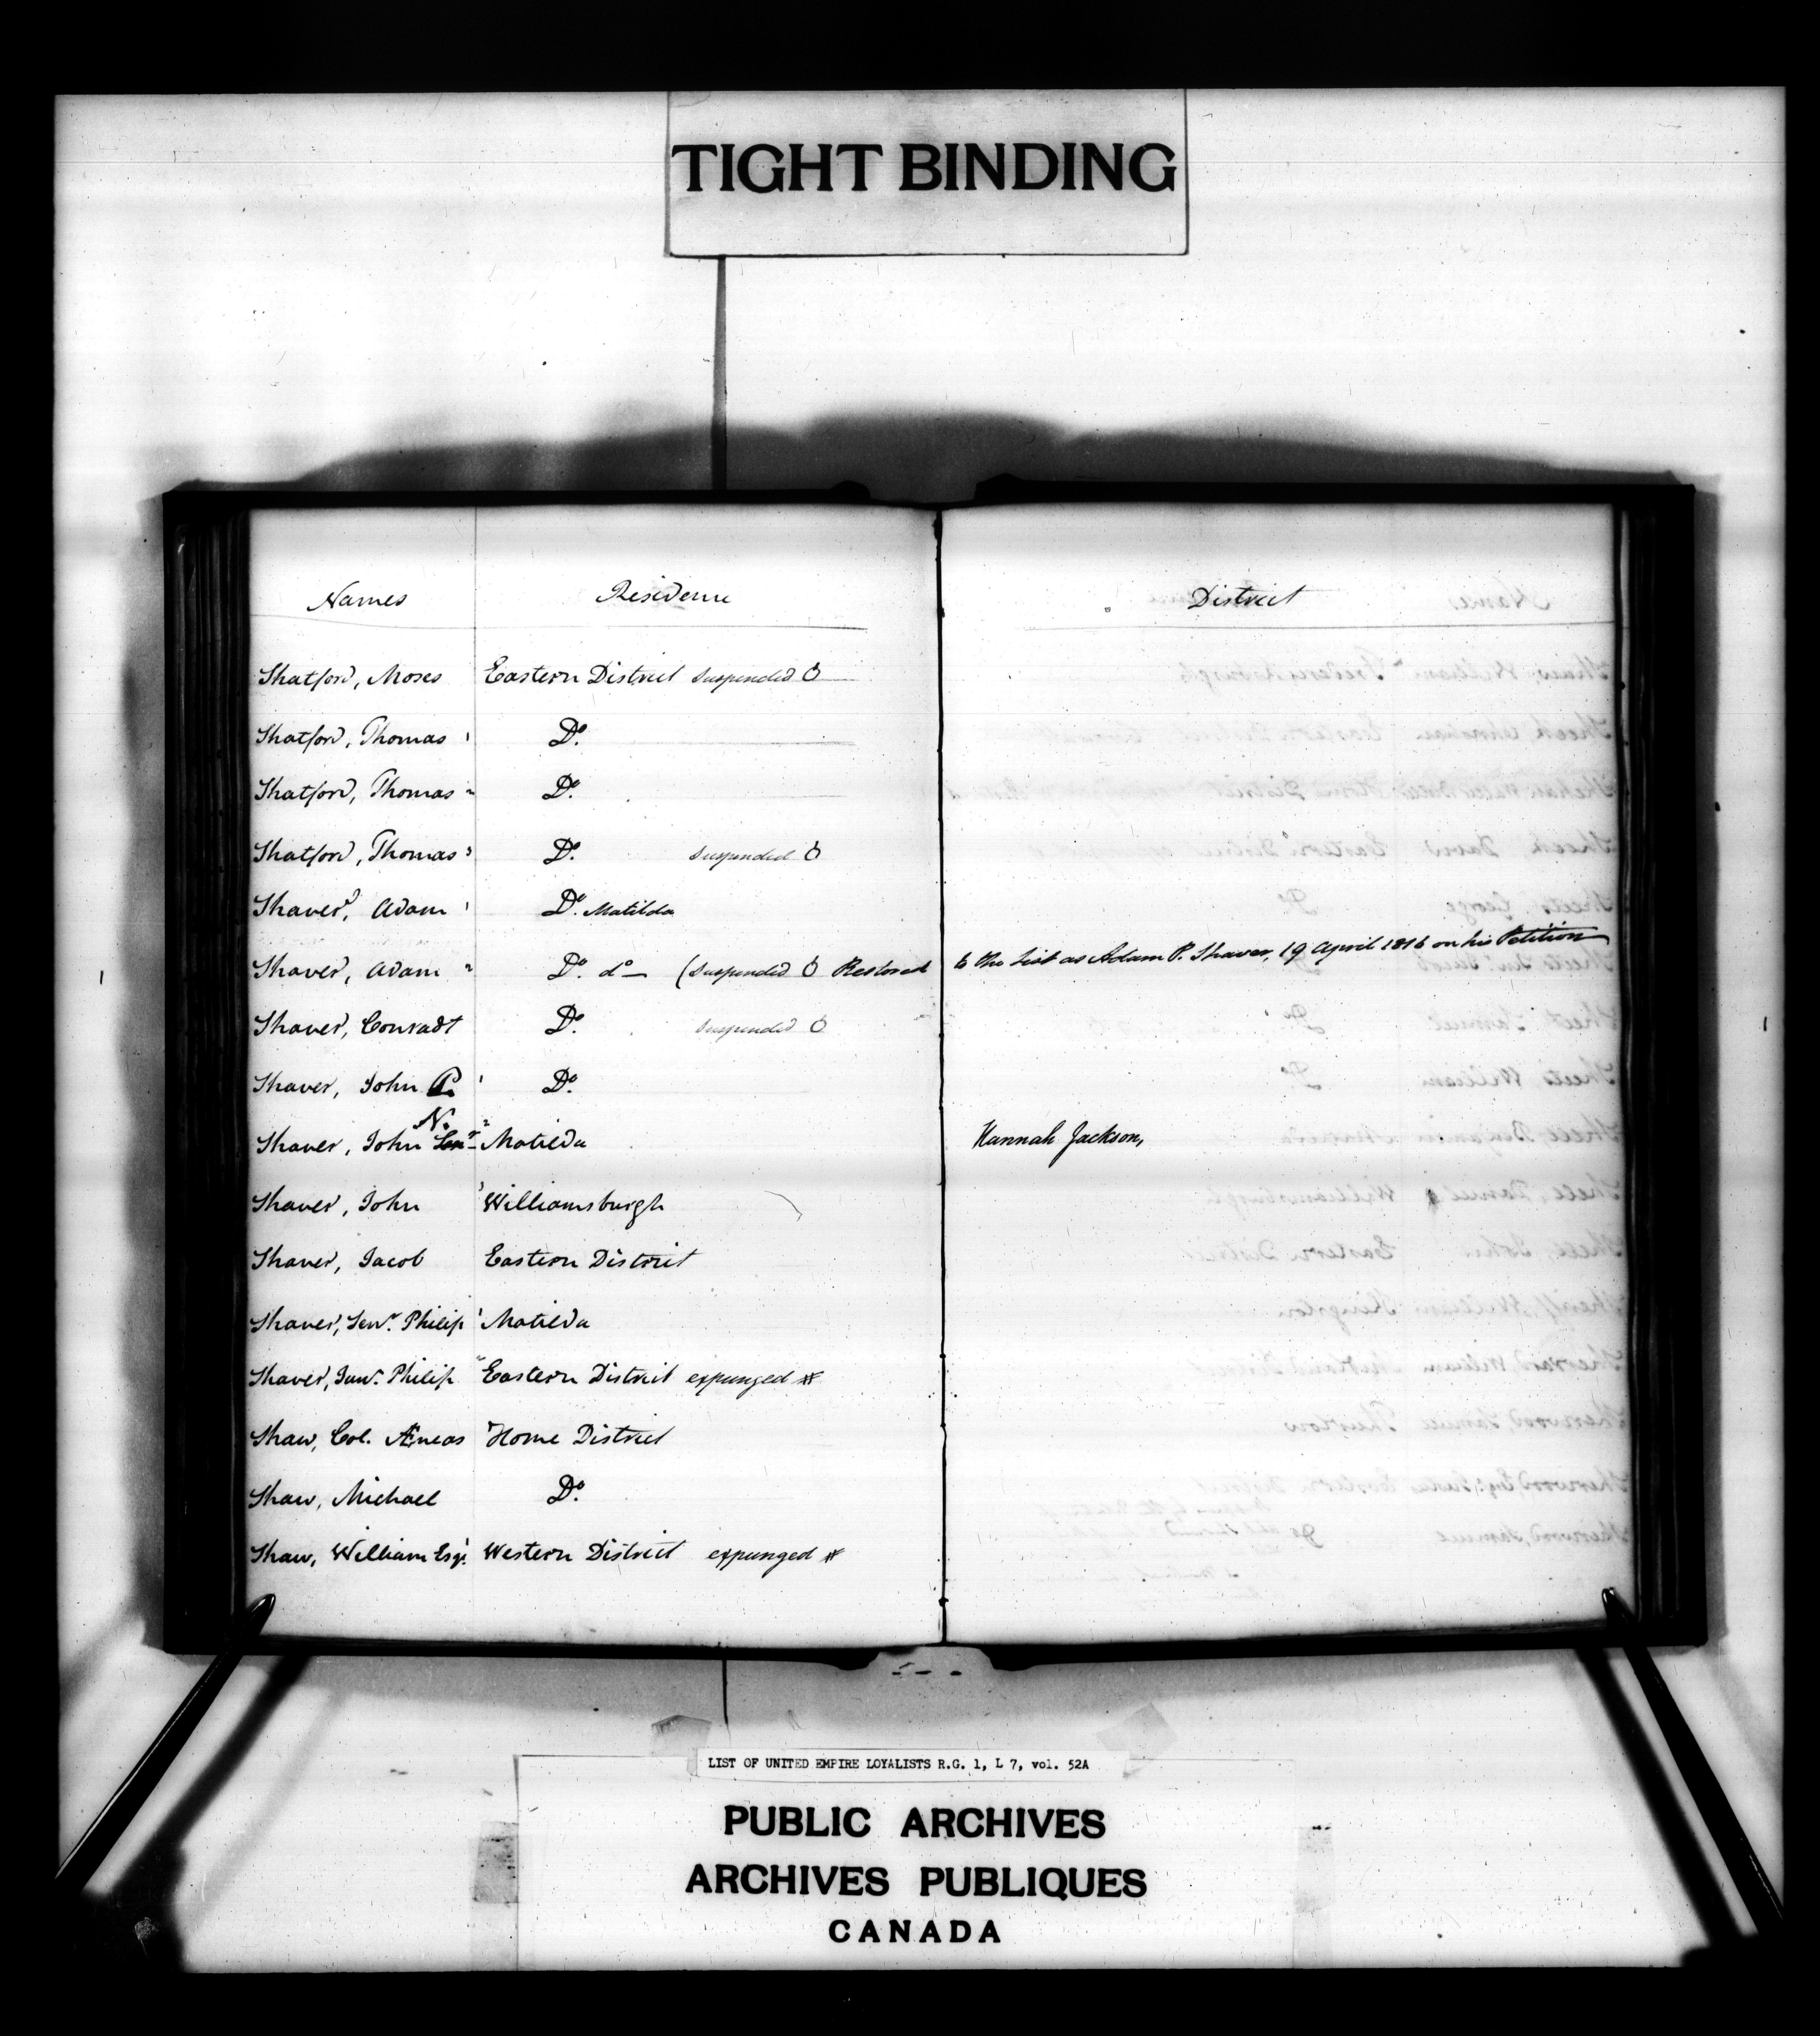 TIGHT BINDING
Names Residence District
Shatford, Moses Eastern District Suspended
Shatford, Thomas 1 Do.
Shatford, Thomas 2 Do.
Shatford, Thomas 3 Do. Suspended
Shaver, Adam 1 Do. Matilda
Shaver, Adam 2 Do. do — (Suspended Restored to the List as Adam P. Shaver, 19 April 1816 on his Petition
Shaver, Conradt Do. Suspended
Shaver, John P. 1 Do.
Shaver, John N. Senr 2 Matilda Hannah Jackson,
Shaver, John 3 Williamsburgh
Shaver, Jacob Eastern District
Shaver, Senr. Philip 1 Matilda
Shaver, Junr. Philip 2 Eastern District expunged
Shaw, Col. Æneas Home District
Shaw, Michael Do.
Shaw, William Esqr. Western District expunged
LIST OF UNITED EMPIRE LOYALISTS R.G. 1, L 7, vol. 52A
PUBLIC ARCHIVES
ARCHIVES PUBLIQUES
CANADA